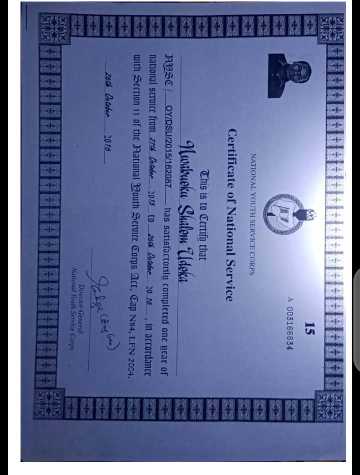 15
A 003166834
NATIONAL YOUTH SERVICE CORPS
Certificate of National Service
This is to Certify that
Nwibueku Shalom Udoka
NYSC / OY/DSU/2015/162087 has satisfactorily completed one year of
national service from 27th October 2017 to 26th October 2018, in accordance
with Section 11 of the National Youth Service Corps Act, Cap N84, LFN 2004.
26th October 2018
Director General
National Youth Service Corps